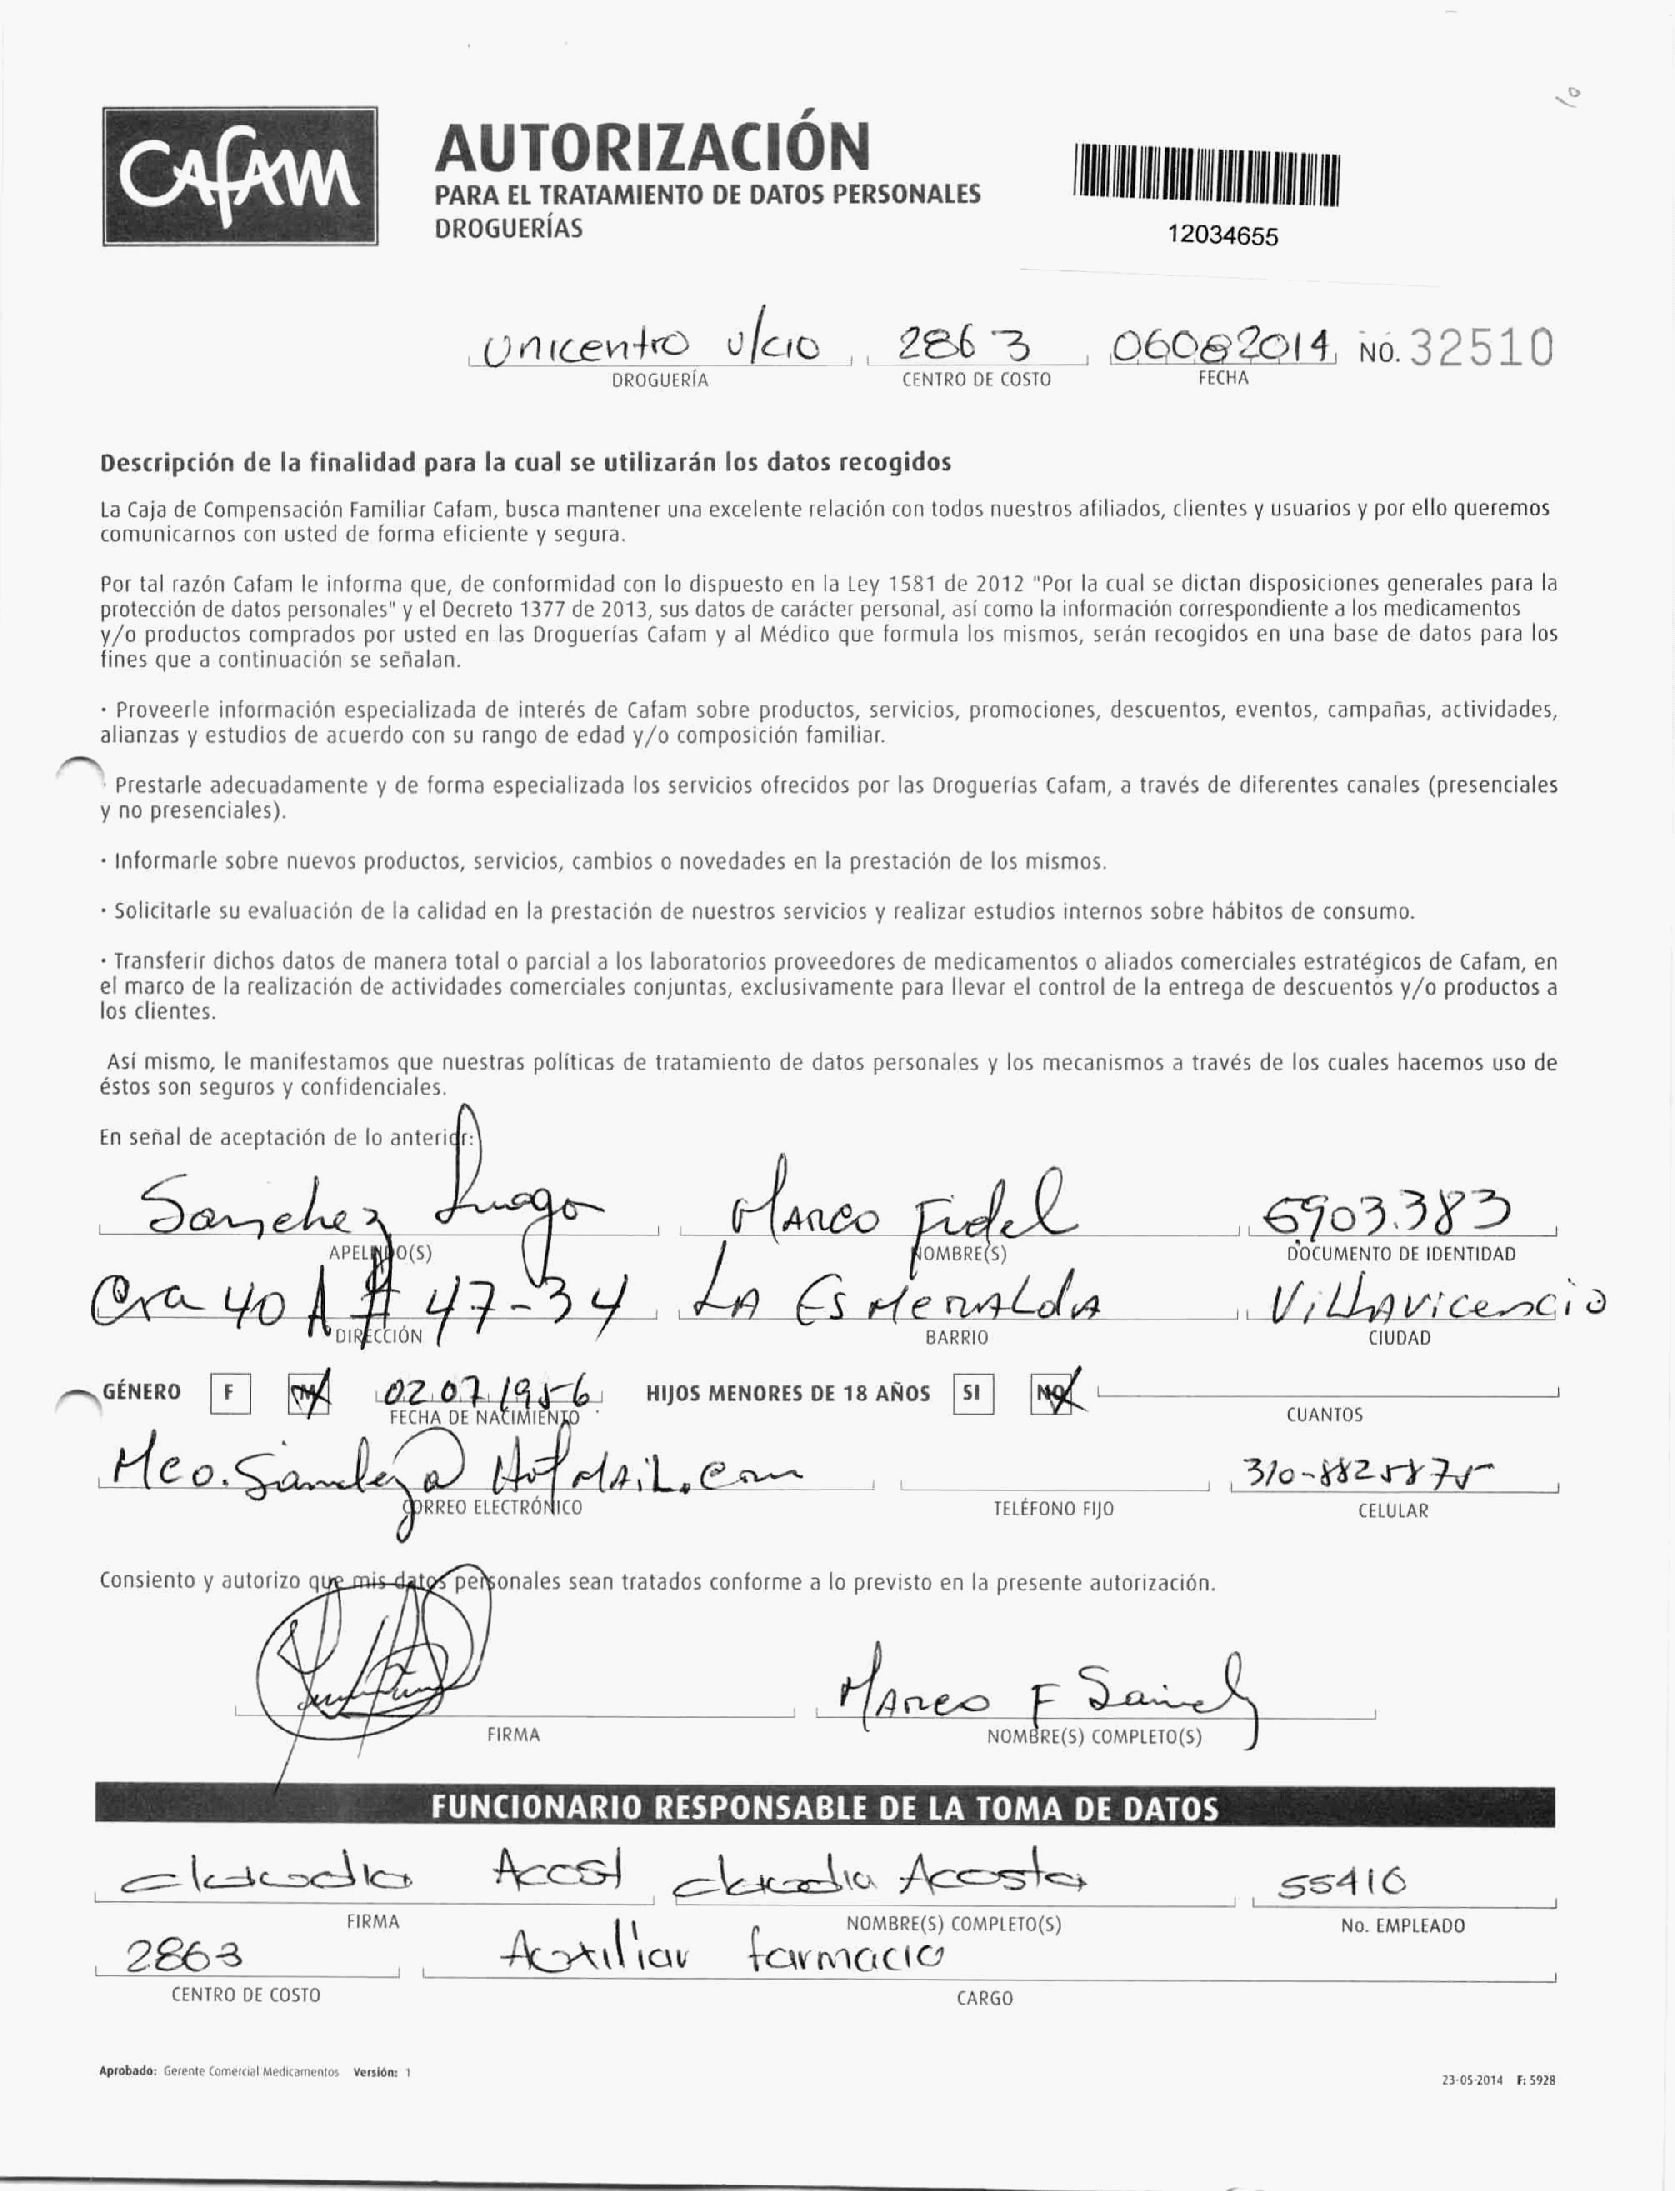 10
Cafam
AUTORIZACIÓN
PARA EL TRATAMIENTO DE DATOS PERSONALES
DROGUERÍAS
12034655
Unicentro v/cio 2863 06082014 NO. 32510
DROGUERÍA CENTRO DE COSTO FECHA
Descripción de la finalidad para la cual se utilizarán los datos recogidos
La Caja de Compensación Familiar Cafam, busca mantener una excelente relación con todos nuestros afiliados, clientes y usuarios y por ello queremos
comunicarnos con usted de forma eficiente y segura.
Por tal razón Cafam le informa que, de conformidad con lo dispuesto en la Ley 1581 de 2012 "Por la cual se dictan disposiciones generales para la
protección de datos personales" y el Decreto 1377 de 2013, sus datos de carácter personal, así como la información correspondiente a los medicamentos
y/o productos comprados por usted en las Droguerías Cafam y al Médico que formula los mismos, serán recogidos en una base de datos para los
fines que a continuación se señalan.
· Proveerle información especializada de interés de Cafam sobre productos, servicios, promociones, descuentos, eventos, campañas, actividades,
alianzas y estudios de acuerdo con su rango de edad y/o composición familiar.
· Prestarle adecuadamente y de forma especializada los servicios ofrecidos por las Droguerías Cafam, a través de diferentes canales (presenciales
y no presenciales).
· Informarle sobre nuevos productos, servicios, cambios o novedades en la prestación de los mismos.
· Solicitarle su evaluación de la calidad en la prestación de nuestros servicios y realizar estudios internos sobre hábitos de consumo.
· Transferir dichos datos de manera total o parcial a los laboratorios proveedores de medicamentos o aliados comerciales estratégicos de Cafam, en
el marco de la realización de actividades comerciales conjuntas, exclusivamente para llevar el control de la entrega de descuentos y/o productos a
los clientes.
Así mismo, le manifestamos que nuestras políticas de tratamiento de datos personales y los mecanismos a través de los cuales hacemos uso de
éstos son seguros y confidenciales.
En señal de aceptación de lo anterior:
Sanchez Lugo Marco Fidel 6903.383
APELLIDO(S) NOMBRE(S) DOCUMENTO DE IDENTIDAD
Cra 40 A # 47-34 LA EsmeraLdA Villavicencio
DIRECCIÓN BARRIO CIUDAD
GÉNERO F M 02 07 1956 HIJOS MENORES DE 18 AÑOS SI NO
FECHA DE NACIMIENTO CUANTOS
Mco.Sanchez@HotmAiL.com 310-8825875
CORREO ELECTRÓNICO TELÉFONO FIJO CELULAR
Consiento y autorizo que mis datos personales sean tratados conforme a lo previsto en la presente autorización.
Marco F Sanchez
FIRMA NOMBRE(S) COMPLETO(S)
FUNCIONARIO RESPONSABLE DE LA TOMA DE DATOS
claudia Acost claudia Acosta 55416
FIRMA NOMBRE(S) COMPLETO(S) No. EMPLEADO
2863 Auxiliar farmacia
CENTRO DE COSTO CARGO
Aprobado: Gerente Comercial Medicamentos Versión: 1
23-05-2014 F: 5928